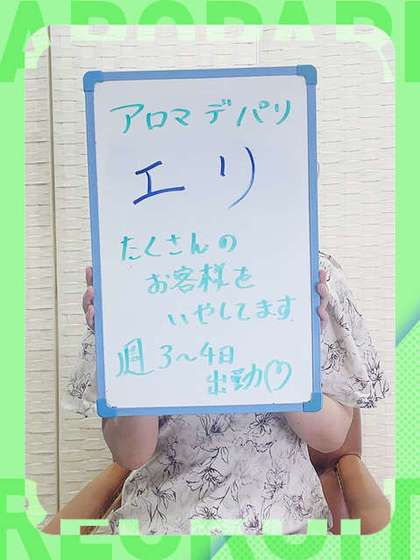 アロマデパリ
エリ
たくさんの
お客様を
いやしてます
週3〜4日
出勤♡
RECRUIT